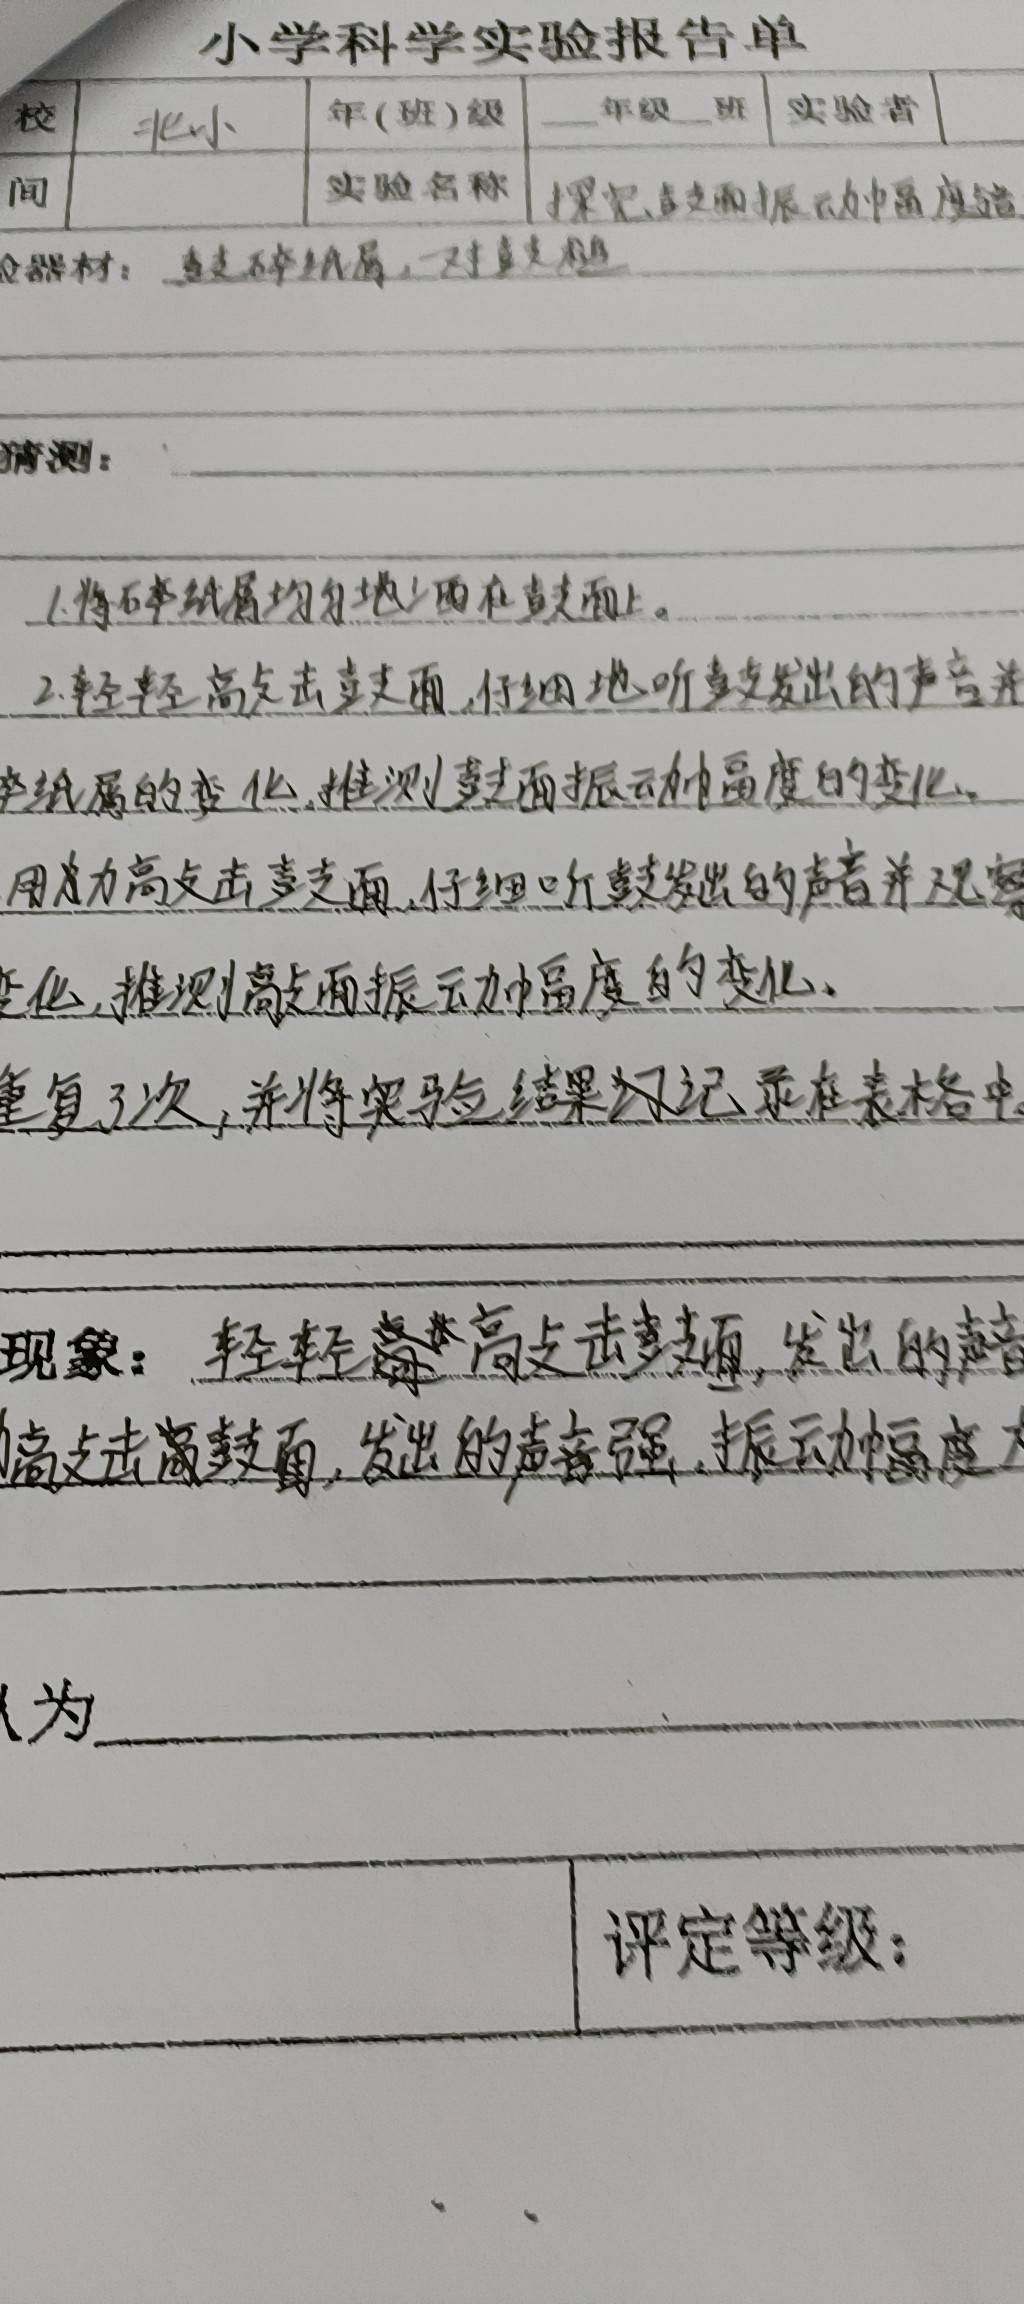 小学科学实验报告单
校 北小 年(班)级 ___年级__班 实验者
间 实验名称 探究鼓面振动幅度
器材: 鼓碎纸屑,一对鼓槌
猜测:
1.将碎纸屑均匀地洒在鼓面上。
2.轻轻敲击鼓面,仔细地听鼓发出的声音并
纸屑的变化,推测鼓面振动幅度的变化。
用力敲击鼓面,仔细听鼓发出的声音并观察
变化,推测鼓面振动幅度的变化。
重复3次,并将实验结果记录在表格中。
现象: 轻轻敲击鼓面,发出的声音
敲击鼓面,发出的声音强,振动幅度大
为
评定等级: